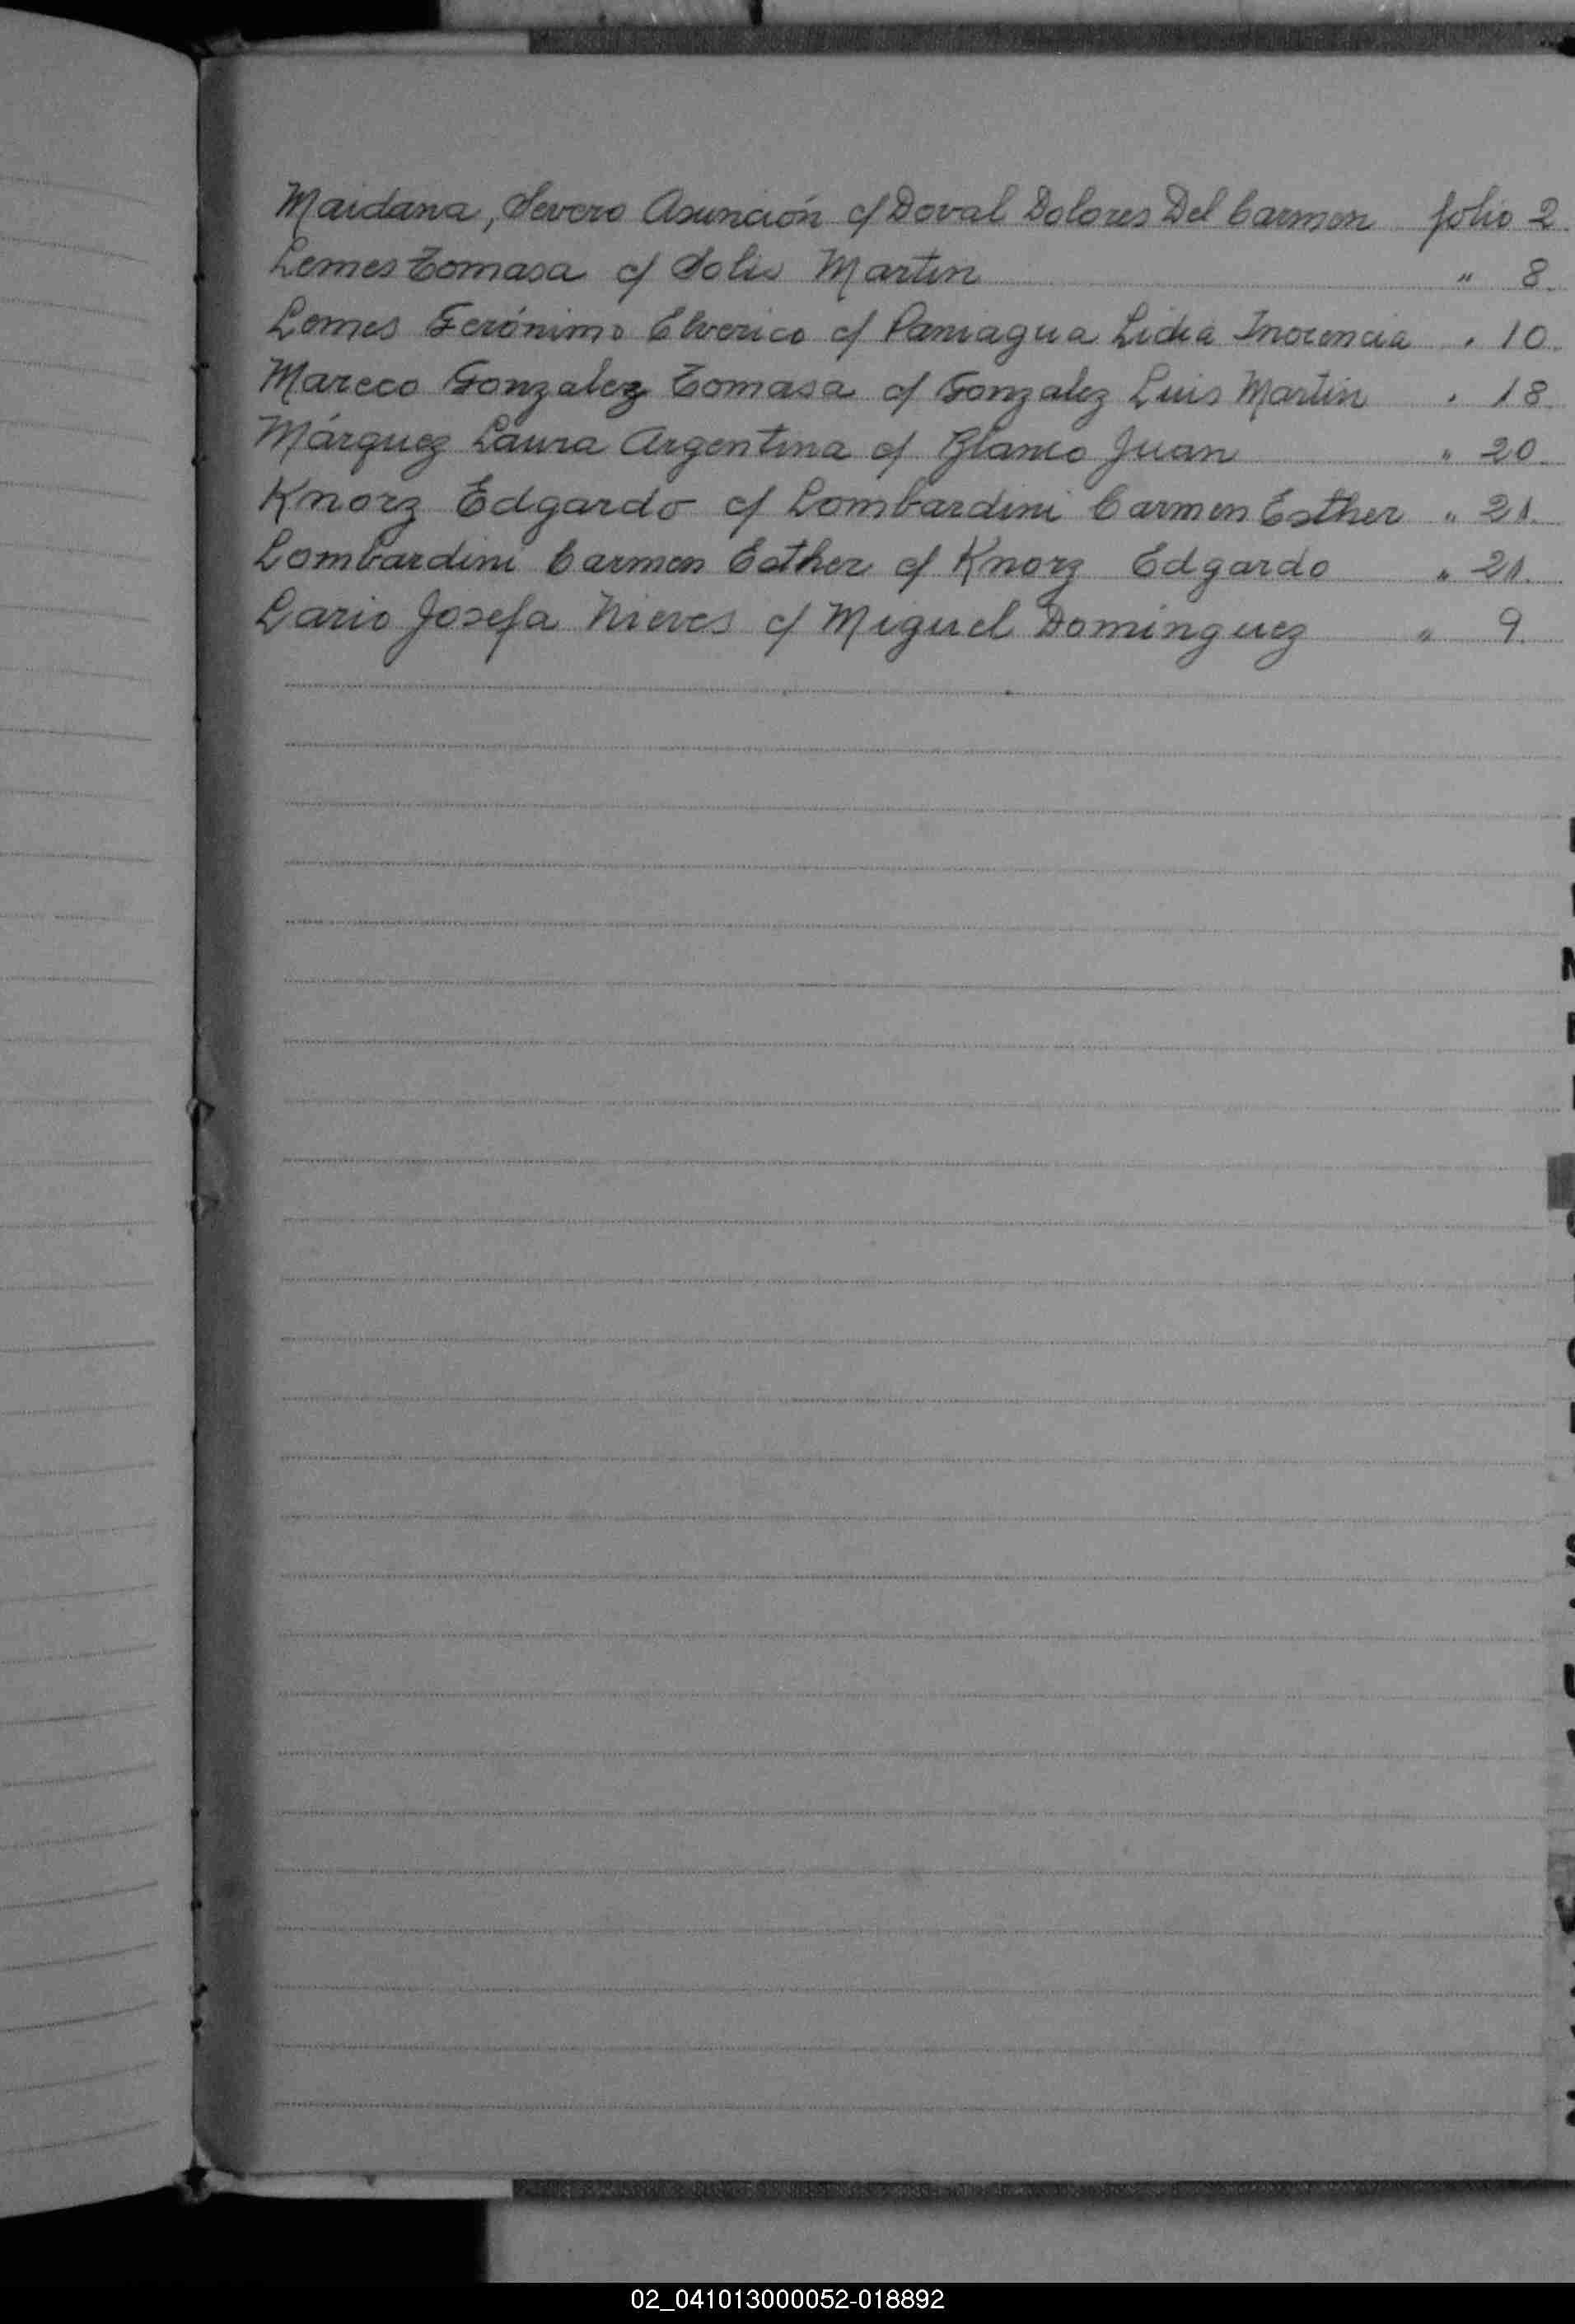 Maidana, Severo Asunción c/ Doval Dolores Del Carmen folio 2.
Lemes Tomasa c/ Solis Martin " 8.
Lemes Gerónimo Elverico c/ Paniagua Lidia Inocencia " 10.
Mareco Gonzalez Tomasa c/ Gonzalez Luis Martin " 18.
Márquez Laura Argentina c/ Blanco Juan " 20
Knorz Edgardo c/ Lombardini Carmen Esther " 21.
Lombardini Carmen Esther c/ Knorz Edgardo " 21.
Lario Josefa Nieves c/ Miguel Dominguez " 9.
02_041013000052-018892